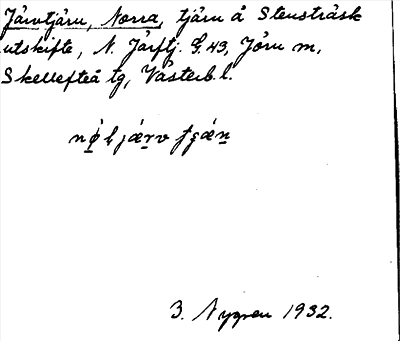 Järvtjärn, Norra, tjärn å Stensträsk
utskifte, N. Järftj. G.43, Jörn m,
Skellefteå tg, Västerb. l.
B. Nygren 1932.